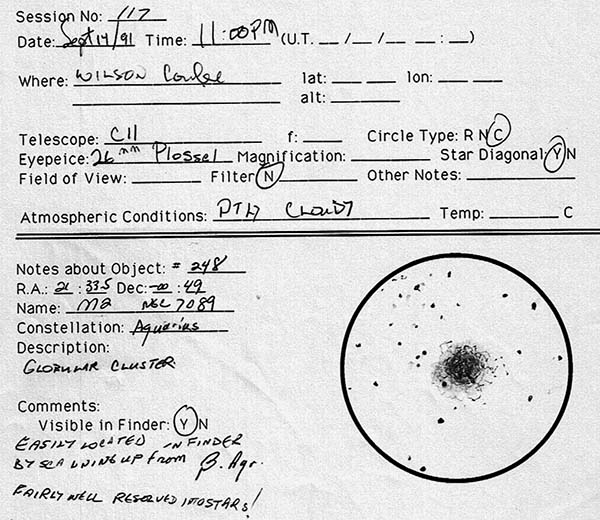 Session No: 117
Date: Sept 14/91 Time: 11:00 PM (U.T. __/__/__ __:__)
Where: WILSON Coulee lat: ___ ___ lon: ___ ___
alt: ______
Telescope: C11 f: ____ Circle Type: R N C
Eyepeice: 26 mm Plossel Magnification: ______ Star Diagonal Y N
Field of View: ______ Filter N ______ Other Notes: ______
Atmospheric Conditions: PTLY CLOUDY Temp: ______ C
Notes about Object: # 248
R.A.: 21 : 33.5 Dec: -00 : 49
Name: M2 NGC 7089
Constellation: Aquarius
Description:
GLOBULAR CLUSTER
Comments:
Visible in Finder: Y N
EASILY LOCATED IN FINDER
BY up from β Aqr.
FAIRLY WELL RESERVED INTO STARS!